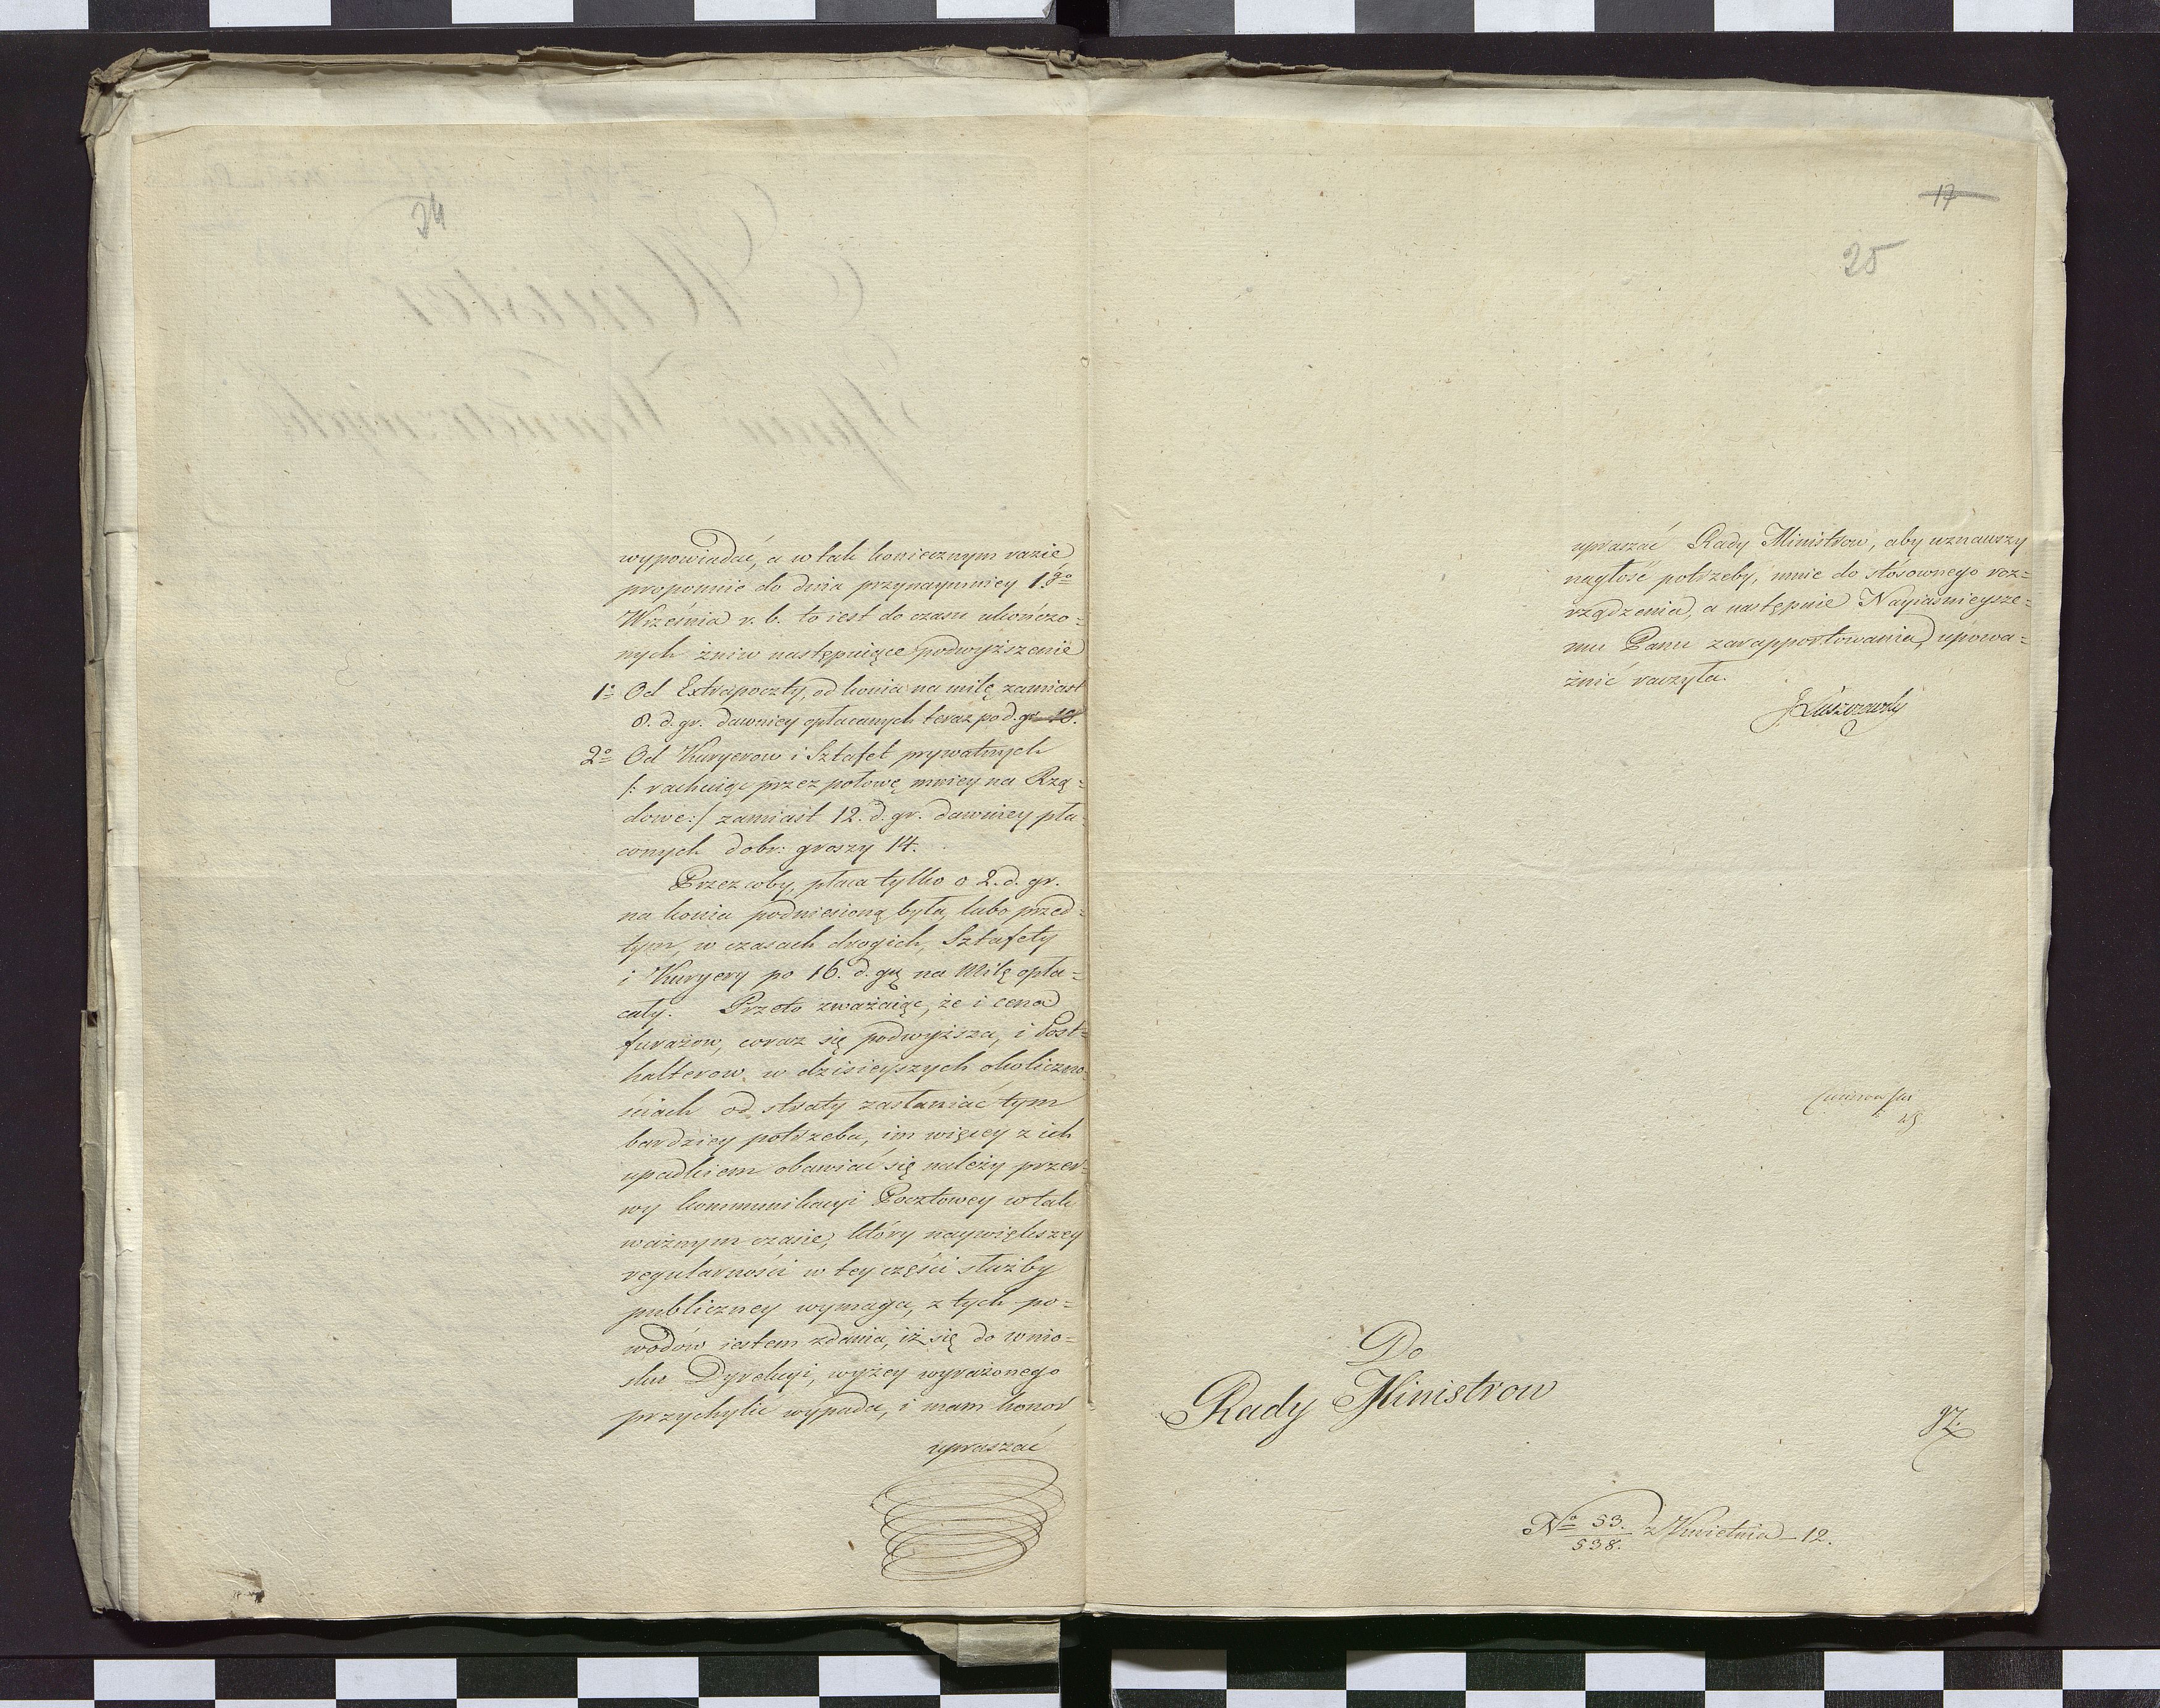 24
wypowiadać, a w tak koniecznym razie
proponuie do dnia przynaymniey 1go
Września r. b. to iest do czasu ukończo=
nych żniw następuiące podwyższenie
1o Od Extrapoczty, od konia na milę zamiast
8. d. gr. dawniey opłacanych teraz po d. gr. 10.
2o Od Kuryerow i Sztafet prywatnych
/: rachuiąc przez połowę mniey na Rzą=
dowe :/ zamiast 12. d. gr. dawniey pła=
conych dobr: groszy 14.
Przez coby, płaca tylko o 2. d. gr.
na konia podniesioną była, lubo przed=
tym, w czasach drogich, Sztafety
i Kuryery po 16. d. gr. na Milę opła=
cały. Przeto zważaiąc, że i cena
furażow, coraz się podwyższa, i Post=
halterow w dzisieyszych okoliczno=
ściach od straty zasłaniać tym
bardziey potrzeba, im więcey z ich
upadkiem obawiać się należy przer=
wy kommunikacyi Pocztowey w tak
ważnym czasie, który naywiększey
regularności w tey części służby
publiczney wymaga, z tych po=
wodów iestem zdania, iż się do wnio=
sku Dyrekcyi, wyżey wyrażonego
przychylić wypada, i mam honor
upraszać
17
25
upraszać Rady Ministrow, aby uznawszy
nagłość potrzeby, mnie do stósownego roz=
rządzenia, a następnie Nayiaśnieysze=
mu Panu zarapportowania, upowa=
żnić raczyła.
JŁuszczewski
Do
Rady Ministrow
No 53./538. z Kwietnia 12.